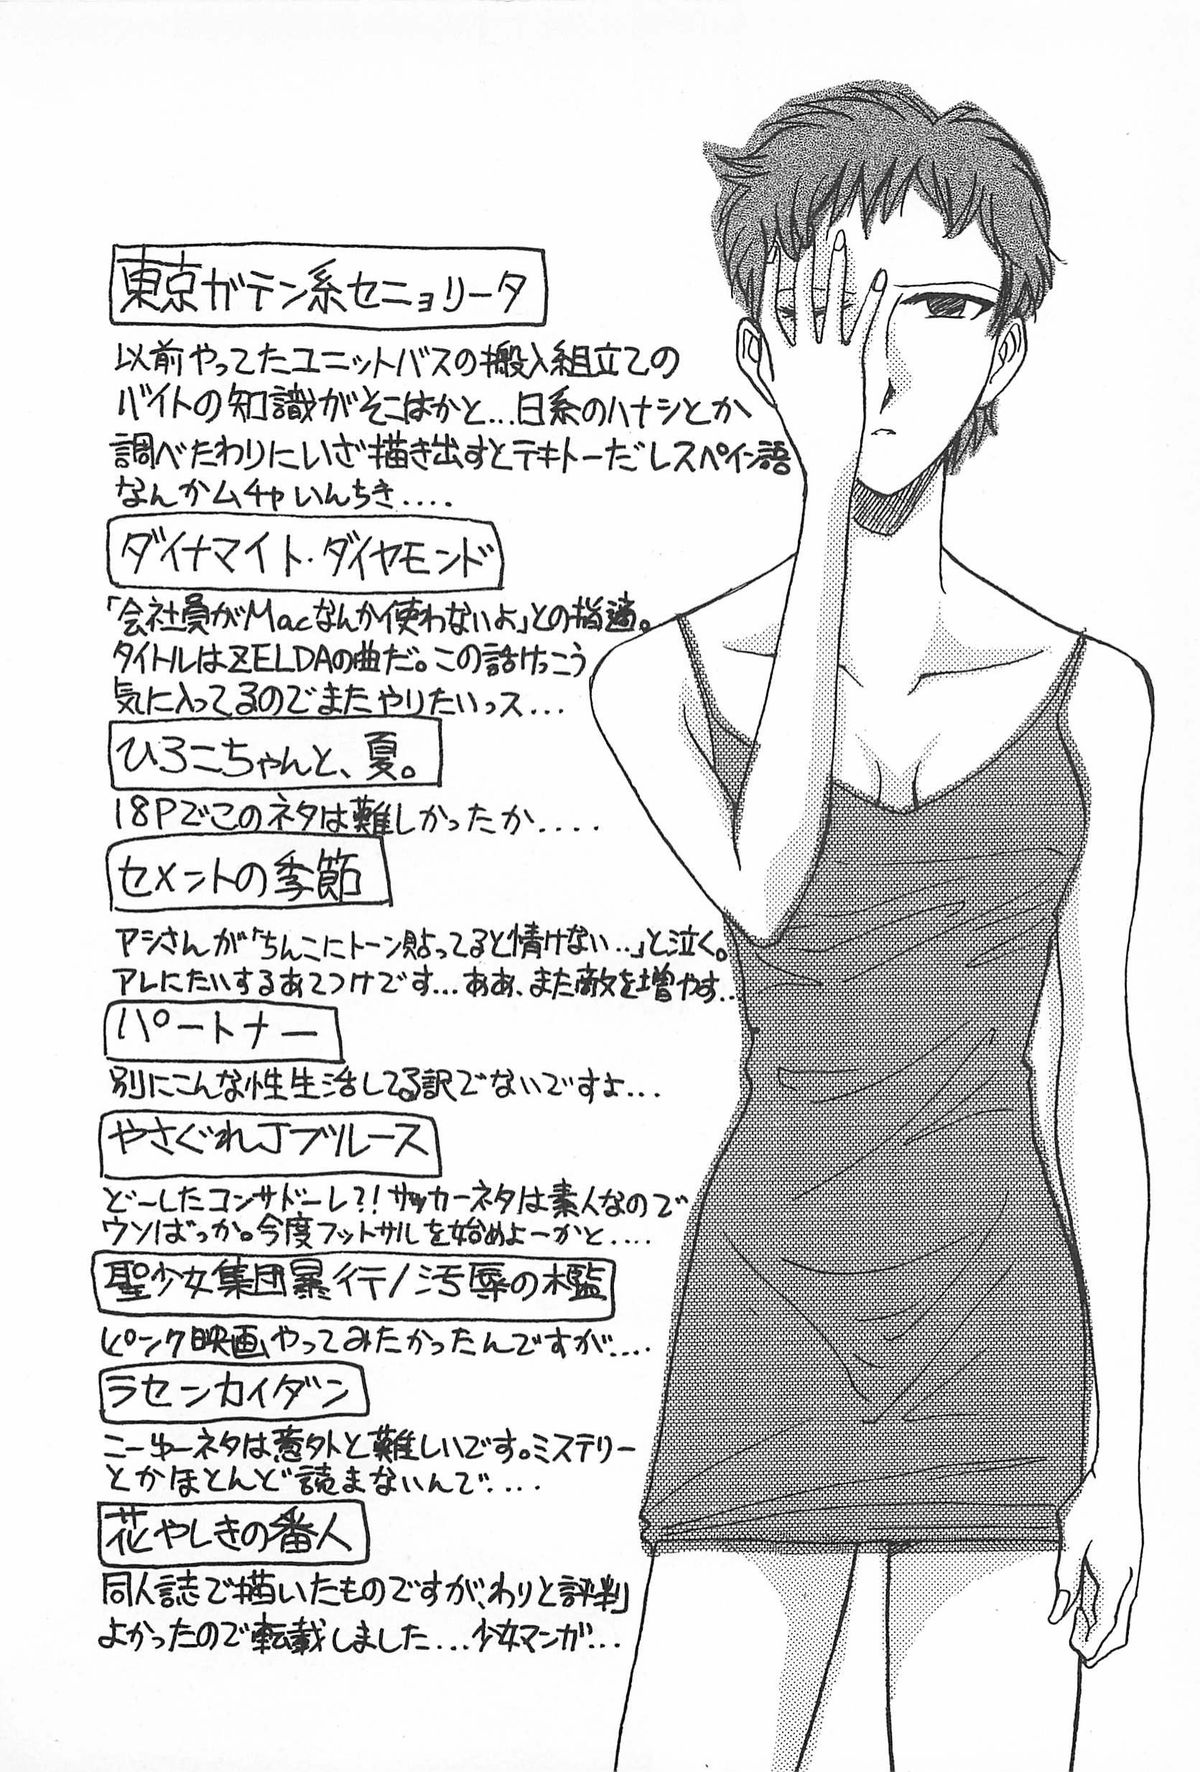 東京ガテン系セニョリータ
以前やってたユニットバスの搬入組立ての
バイトの知識がそこはかと…日系のハナシとか
調べたわりにいざ描き出すとテキトーだしスペイン語
なんかムチャいんちき....
ダイナマイト・ダイヤモンド
「会社員がMacなんか使わないよ」との指適。
タイトルはZELDAの曲だ。この話けっこう
気に入ってるのでまたやりたいっス...
ひろこちゃんと、夏。
18Pでこのネタは難しかったか....
セメントの季節
アシさんが「ちんこにトーン貼ってると情けない…」と泣く。
アレにたいするあてつけです…ああ、また敵を増やす..
パートナー
別にこんな性生活してる訳でないですよ...
やさぐれJブルース
ど〜したコンサドーレ?!サッカーネタは素人なので
ウソばっか。今度フットサルを始めよーかと....
聖少女集団暴行/汚辱の檻
ピンク映画やってみたかったんですが....
ラセンカイダン
こーゆーネタは意外と難しいです。ミステリー
とかほとんど読まないんで....
花やしきの番人
同人誌で描いたものですが、わりと評判
よかったので転載しました...少女マンガ...